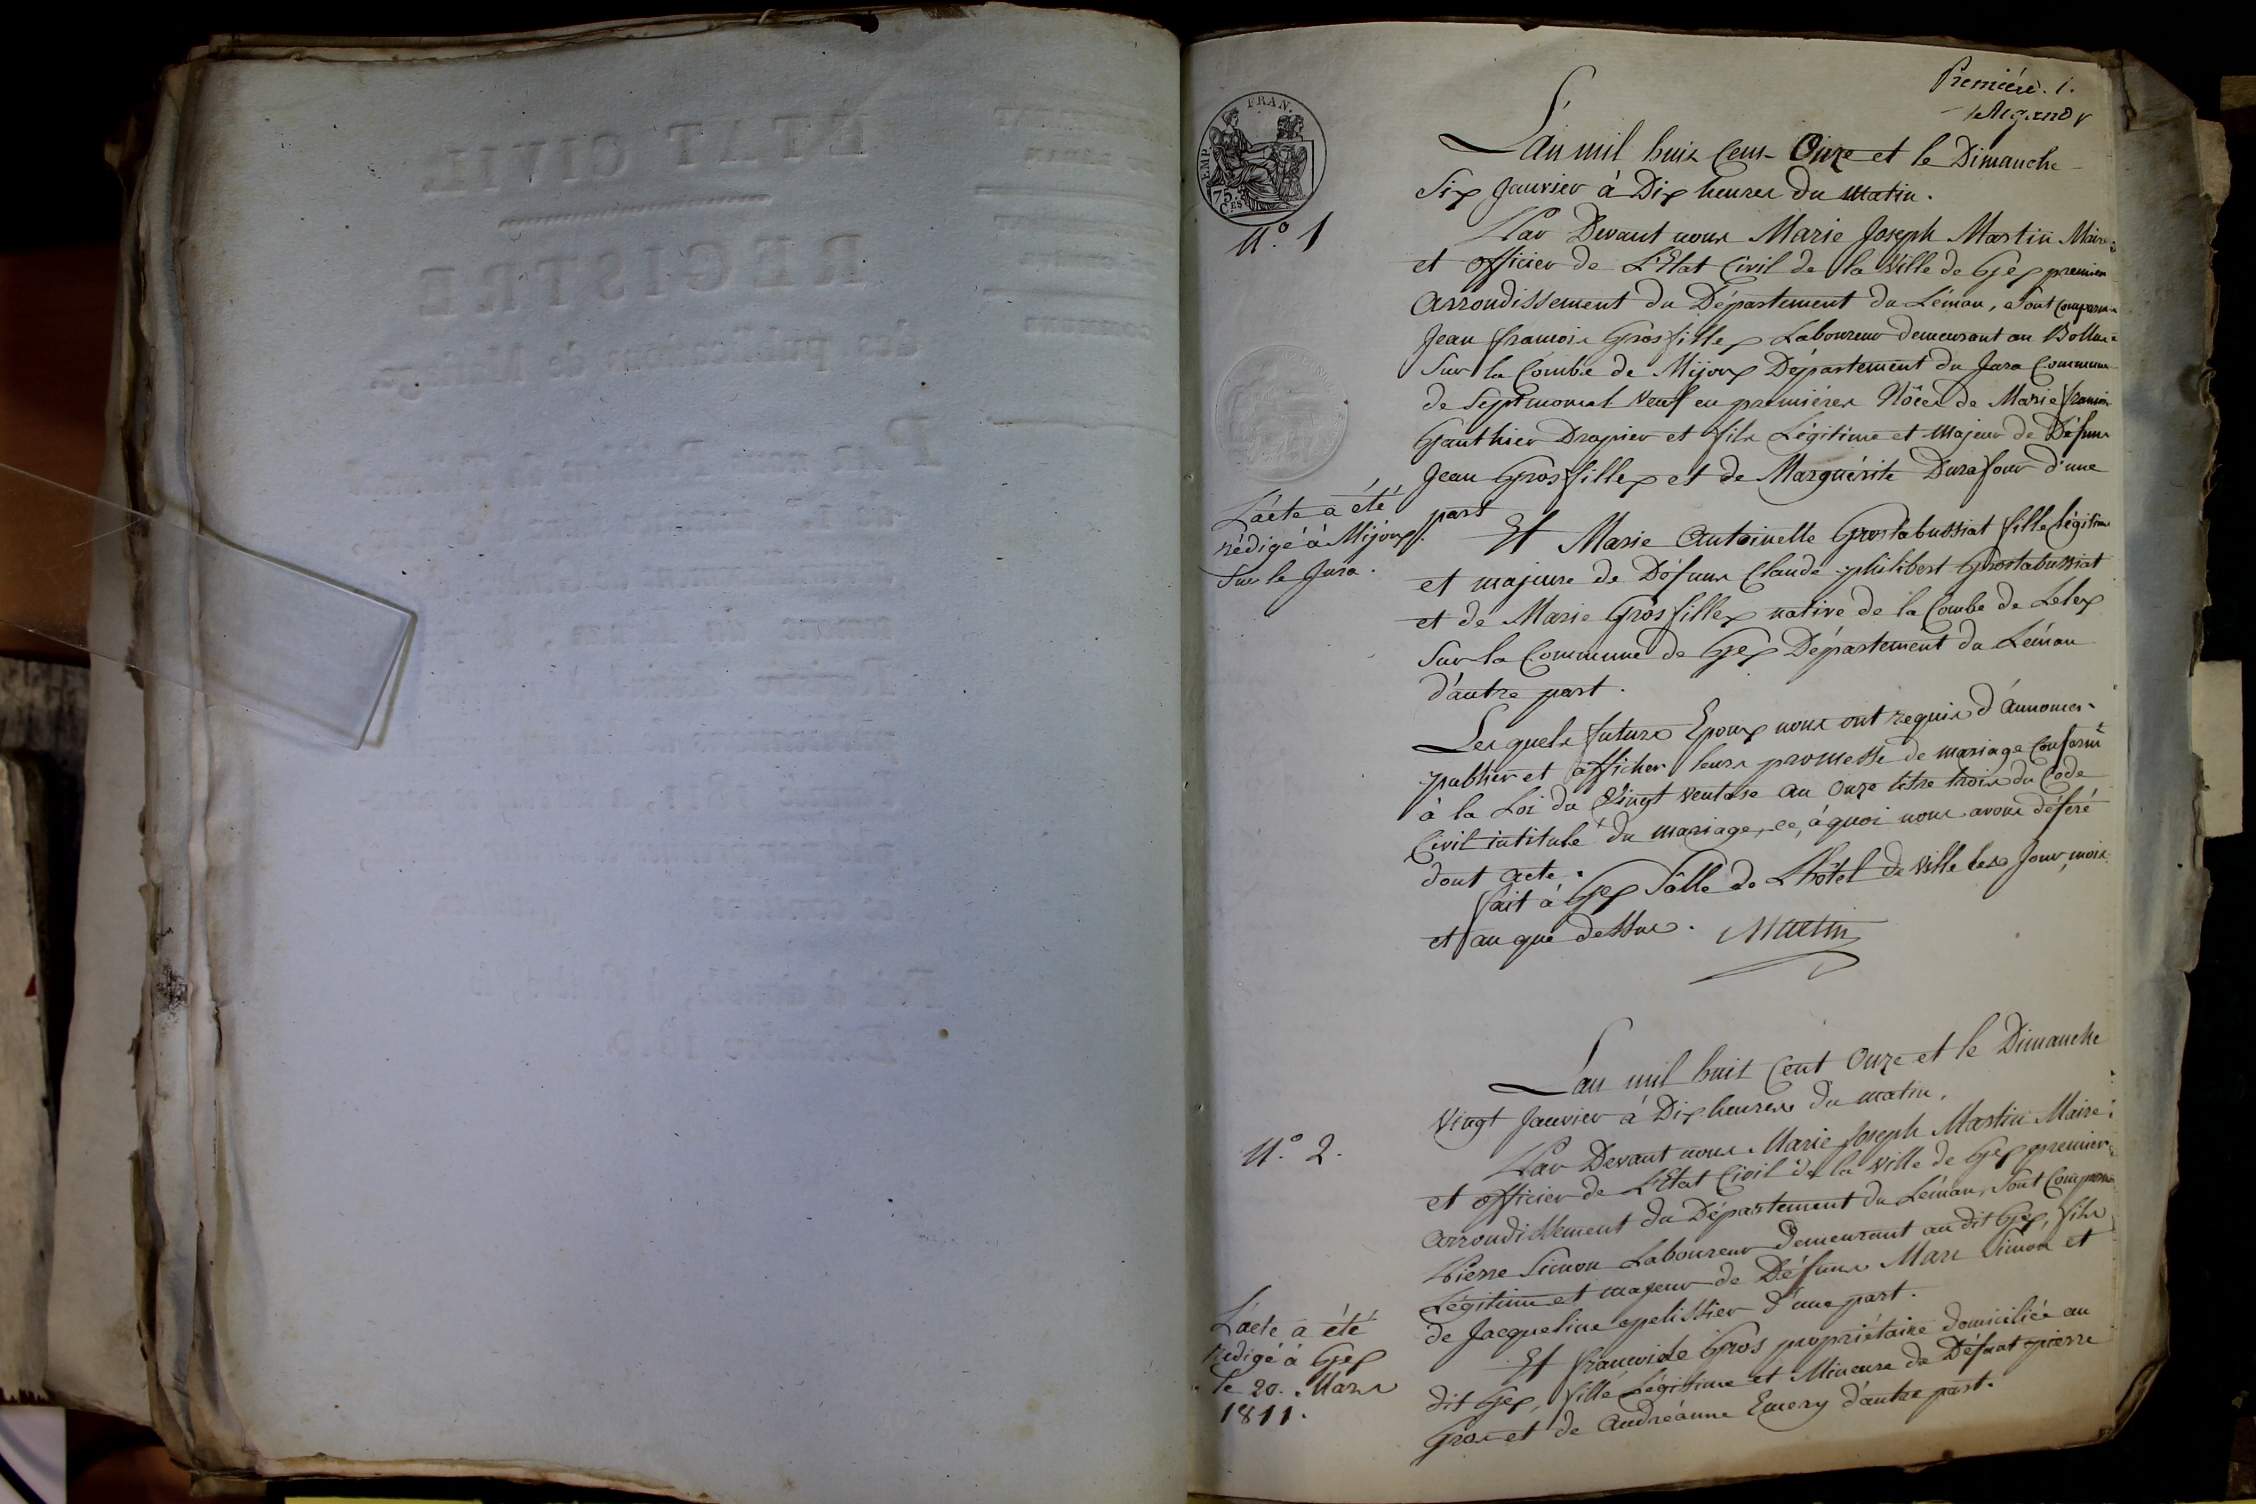 ETAT CIVIL
REGISTRE
des publications de Mariage
Première. 1.
FRAN.
EMP.
75.
CES
L'an mil huit Cent Onze et le Dimanche
Six Janvier à Dix heures du matin.
N.º 1
Par Devant nous Marie Joseph Martin Maire
et officier de L'Etat Civil de la Ville de Gex premier
arrondissement du Département du Léman, sont comparus
Jean françois Grosfillex Laboureur demeurant au
Sur la Combe de Mijoux Département du Jura Commune
de Septmoncel veuf en premières Nôces de Marie françoise
Gauthier Drapier et fils Légitime et majeur de Défunt
Jean Grosfillex et de Marguérite Durafour d'une
part
L'acte a été
rédigé à Mijoux
Sur le Jura.
Et Marie Antoinette Grostabussiat fille légitime
et majeure de Défunt Claude philibert Grostabussiat
et de Marie Grosfillex native de la Combe de Lelex
Sur la Commune de Gex Département du Léman
d'autre part.
Lesquels futurs Epoux nous ont requis d'annoncer
publier et afficher leurs promesse de mariage Conformt
à la Loi du Vingt ventose an Onze titre trois du Code
Civil intitulé du mariage, à quoi nous avons déféré
dont acte.
fait à Gex Salle de L'hôtel de ville les Jour, mois
et an que dessus. Martin
L'an mil huit Cent Onze et le Dimanche
Vingt Janvier à Dix heures du matin.
N.º 2.
Par Devant nous Marie Joseph Martin Maire
et officier de L'Etat Civil de la Ville de Gex premier
arrondissement du Département du Léman, Sont Comparus
Pierre Simon Laboureur Demeurant au dit Gex, fils
Légitime et majeur de Défunt Marc Simon et
de Jacqueline pelissier d'une part.
L'acte a été
rédigé à Gex
le 20. Mars
1811.
Et françoise Gros propriétaire domiciliée au
dit Gex, fille Légitime et Mineure de Défunt pierre
Gros et de Andréanne Emery d'autre part.